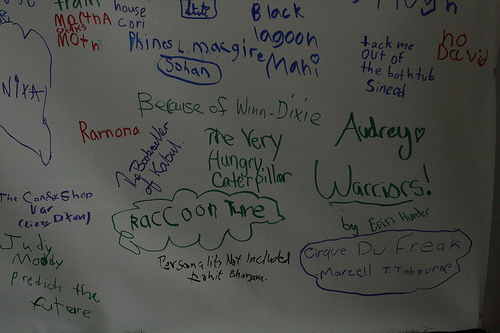 train
house
State
Black
MarthA
speaks
cori
lagoon
Moth
Phines L. macgire
Mahi
no
David
tack me
out of
the bathtub
Sinead
Johan
NiXA
Because of Winn-Dixie
Ramona
The Bookseller
of Kabul.
The Very
Hungry
Caterpillar
Audrey
Warriors!
by Erin Hunter
The Conex Shop
Var
Dixon)
RacCoon Tune
Cirque Du Freak
Marcell
Judy
Moody
predicts the
future
Personality Not Included
Rohit Bhargava.